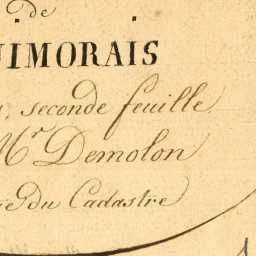 de
UIMORAIS
, seconde feuille
Mr Demolon
re du Cadastre